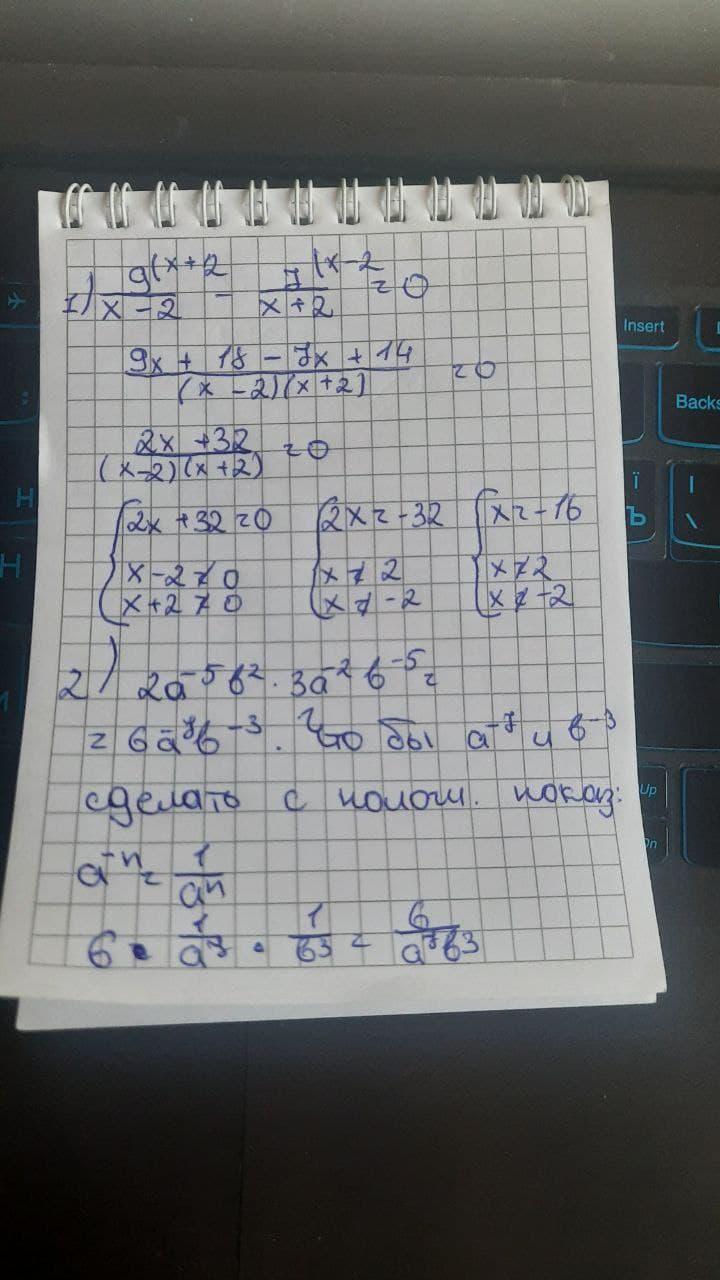 1) 9(x+2 / x-2 - 7(x-2 / x+2 = 0
9x + 18 - 7x + 14 / (x-2)(x+2) = 0
2x + 32 / (x-2)(x+2) = 0
{2x + 32 = 0 {2x = -32 {x = -16
x - 2 ≠ 0 x ≠ 2 x ≠ 2
x + 2 ≠ 0 x ≠ -2 x ≠ -2
2) 2a⁻⁵b² · 3a⁻²b⁻⁵ =
= 6a⁻⁷b⁻³. Что бы a⁻⁷ и b⁻³
сделать с полож. показ:
a⁻ⁿ = 1/aⁿ
6 · 1/a⁷ · 1/b³ = 6/a⁷b³
Insert
Backs
Ї
Ъ
\
Н
Н
Up